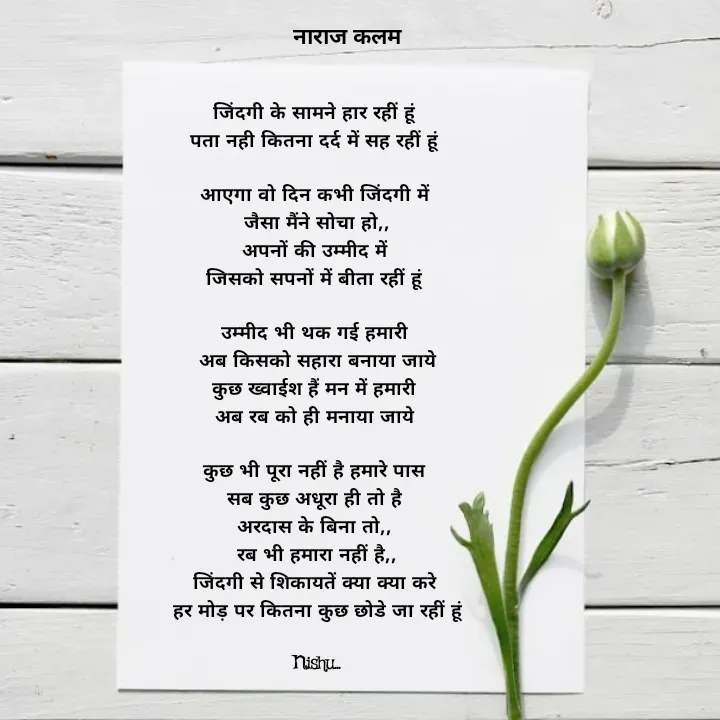 नाराज कलम
जिंदगी के सामने हार रहीं हूं
पता नही कितना दर्द में सह रहीं हूं
आएगा वो दिन कभी जिंदगी में
जैसा मैंने सोचा हो,,
अपनों की उम्मीद में
जिसको सपनों में बीता रहीं हूं
उम्मीद भी थक गई हमारी
अब किसको सहारा बनाया जाये
कुछ ख्वाईश हैं मन में हमारी
अब रब को ही मनाया जाये
कुछ भी पूरा नहीं है हमारे पास
सब कुछ अधूरा ही तो है
अरदास के बिना तो,,
रब भी हमारा नहीं है,,
जिंदगी से शिकायतें क्या क्या करे
हर मोड़ पर कितना कुछ छोडे जा रहीं हूं
Nishu...